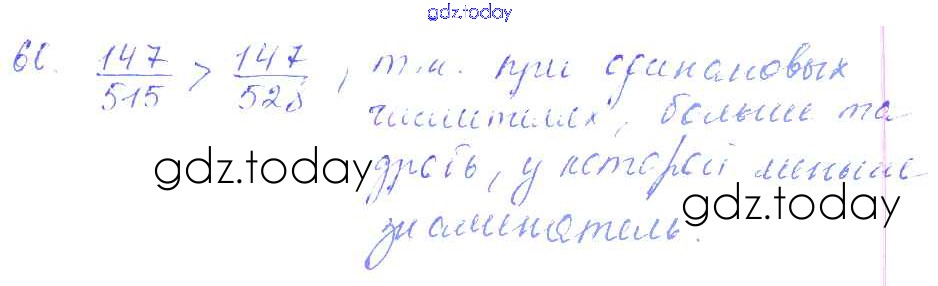 gdz.today
66. 147/515 > 147/528, т.к. при одинаковых
числителях, больше та
gdz.today дробь, у которой меньше
gdz.today
знаменатель.